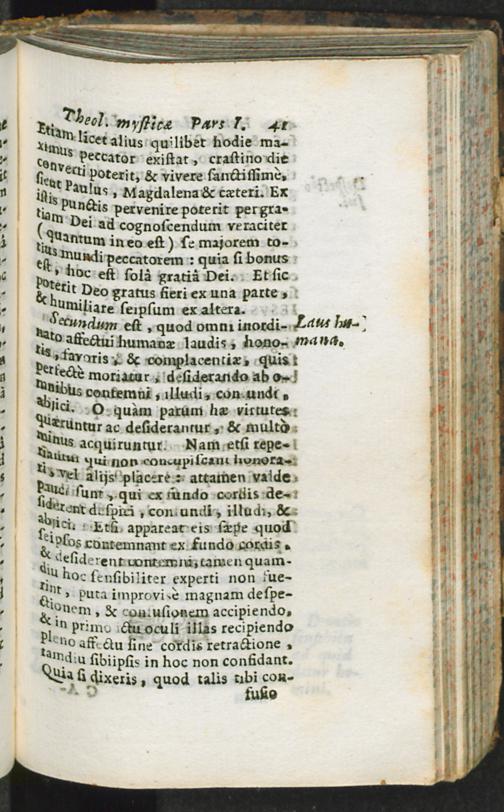 Theol. mysticæ Pars I. 41
Etiam licet alius quilibet hodie ma-
ximus peccator existat, crastino die
converti poterit, & vivere sanctissimè,
sicut Paulus, Magdalena & cæteri. Ex
istis punctis pervenire poterit per gra-
tiam Dei ad cognoscendum veraciter
(quantum in eo est) se majorem to-
tius mundi peccatorem: quia si bonus
est, hoc est solâ gratiâ Dei. Et sic
poterit Deo gratus fieri ex una parte,
& humiliare seipsum ex altera.
Secundum est, quod omni inordi-
nato affectui humanæ laudis, hono-
ris, favoris, & complacentiæ, quis
perfectè moriatur, desiderando ab o-
mnibus contemni, illudi, confundi,
abjici. O quàm parum hæ virtutes
quæruntur ac desiderantur, & multò
minus acquiruntur. Nam etsi repe-
riantur qui non concupiscant honora-
ri, vel alijs placere: attamen valde
pauci sunt, qui ex fundo cordis de-
siderent despici, confundi, illudi, &
abjici. Etsi appareat eis sæpe quod
seipsos contemnant ex fundo cordis,
& desiderent contemni, tamen quam-
diu hoc sensibiliter experti non fue-
rint, puta improvisè magnam despe-
ctionem, & confusionem accipiendo,
& in primo ictu oculi illas recipiendo
pleno affectu sine cordis retractione,
tamdiu sibiipsis in hoc non confidant.
Quia si dixeris, quod talis tibi con-
fusio
Laus hu-
mana.